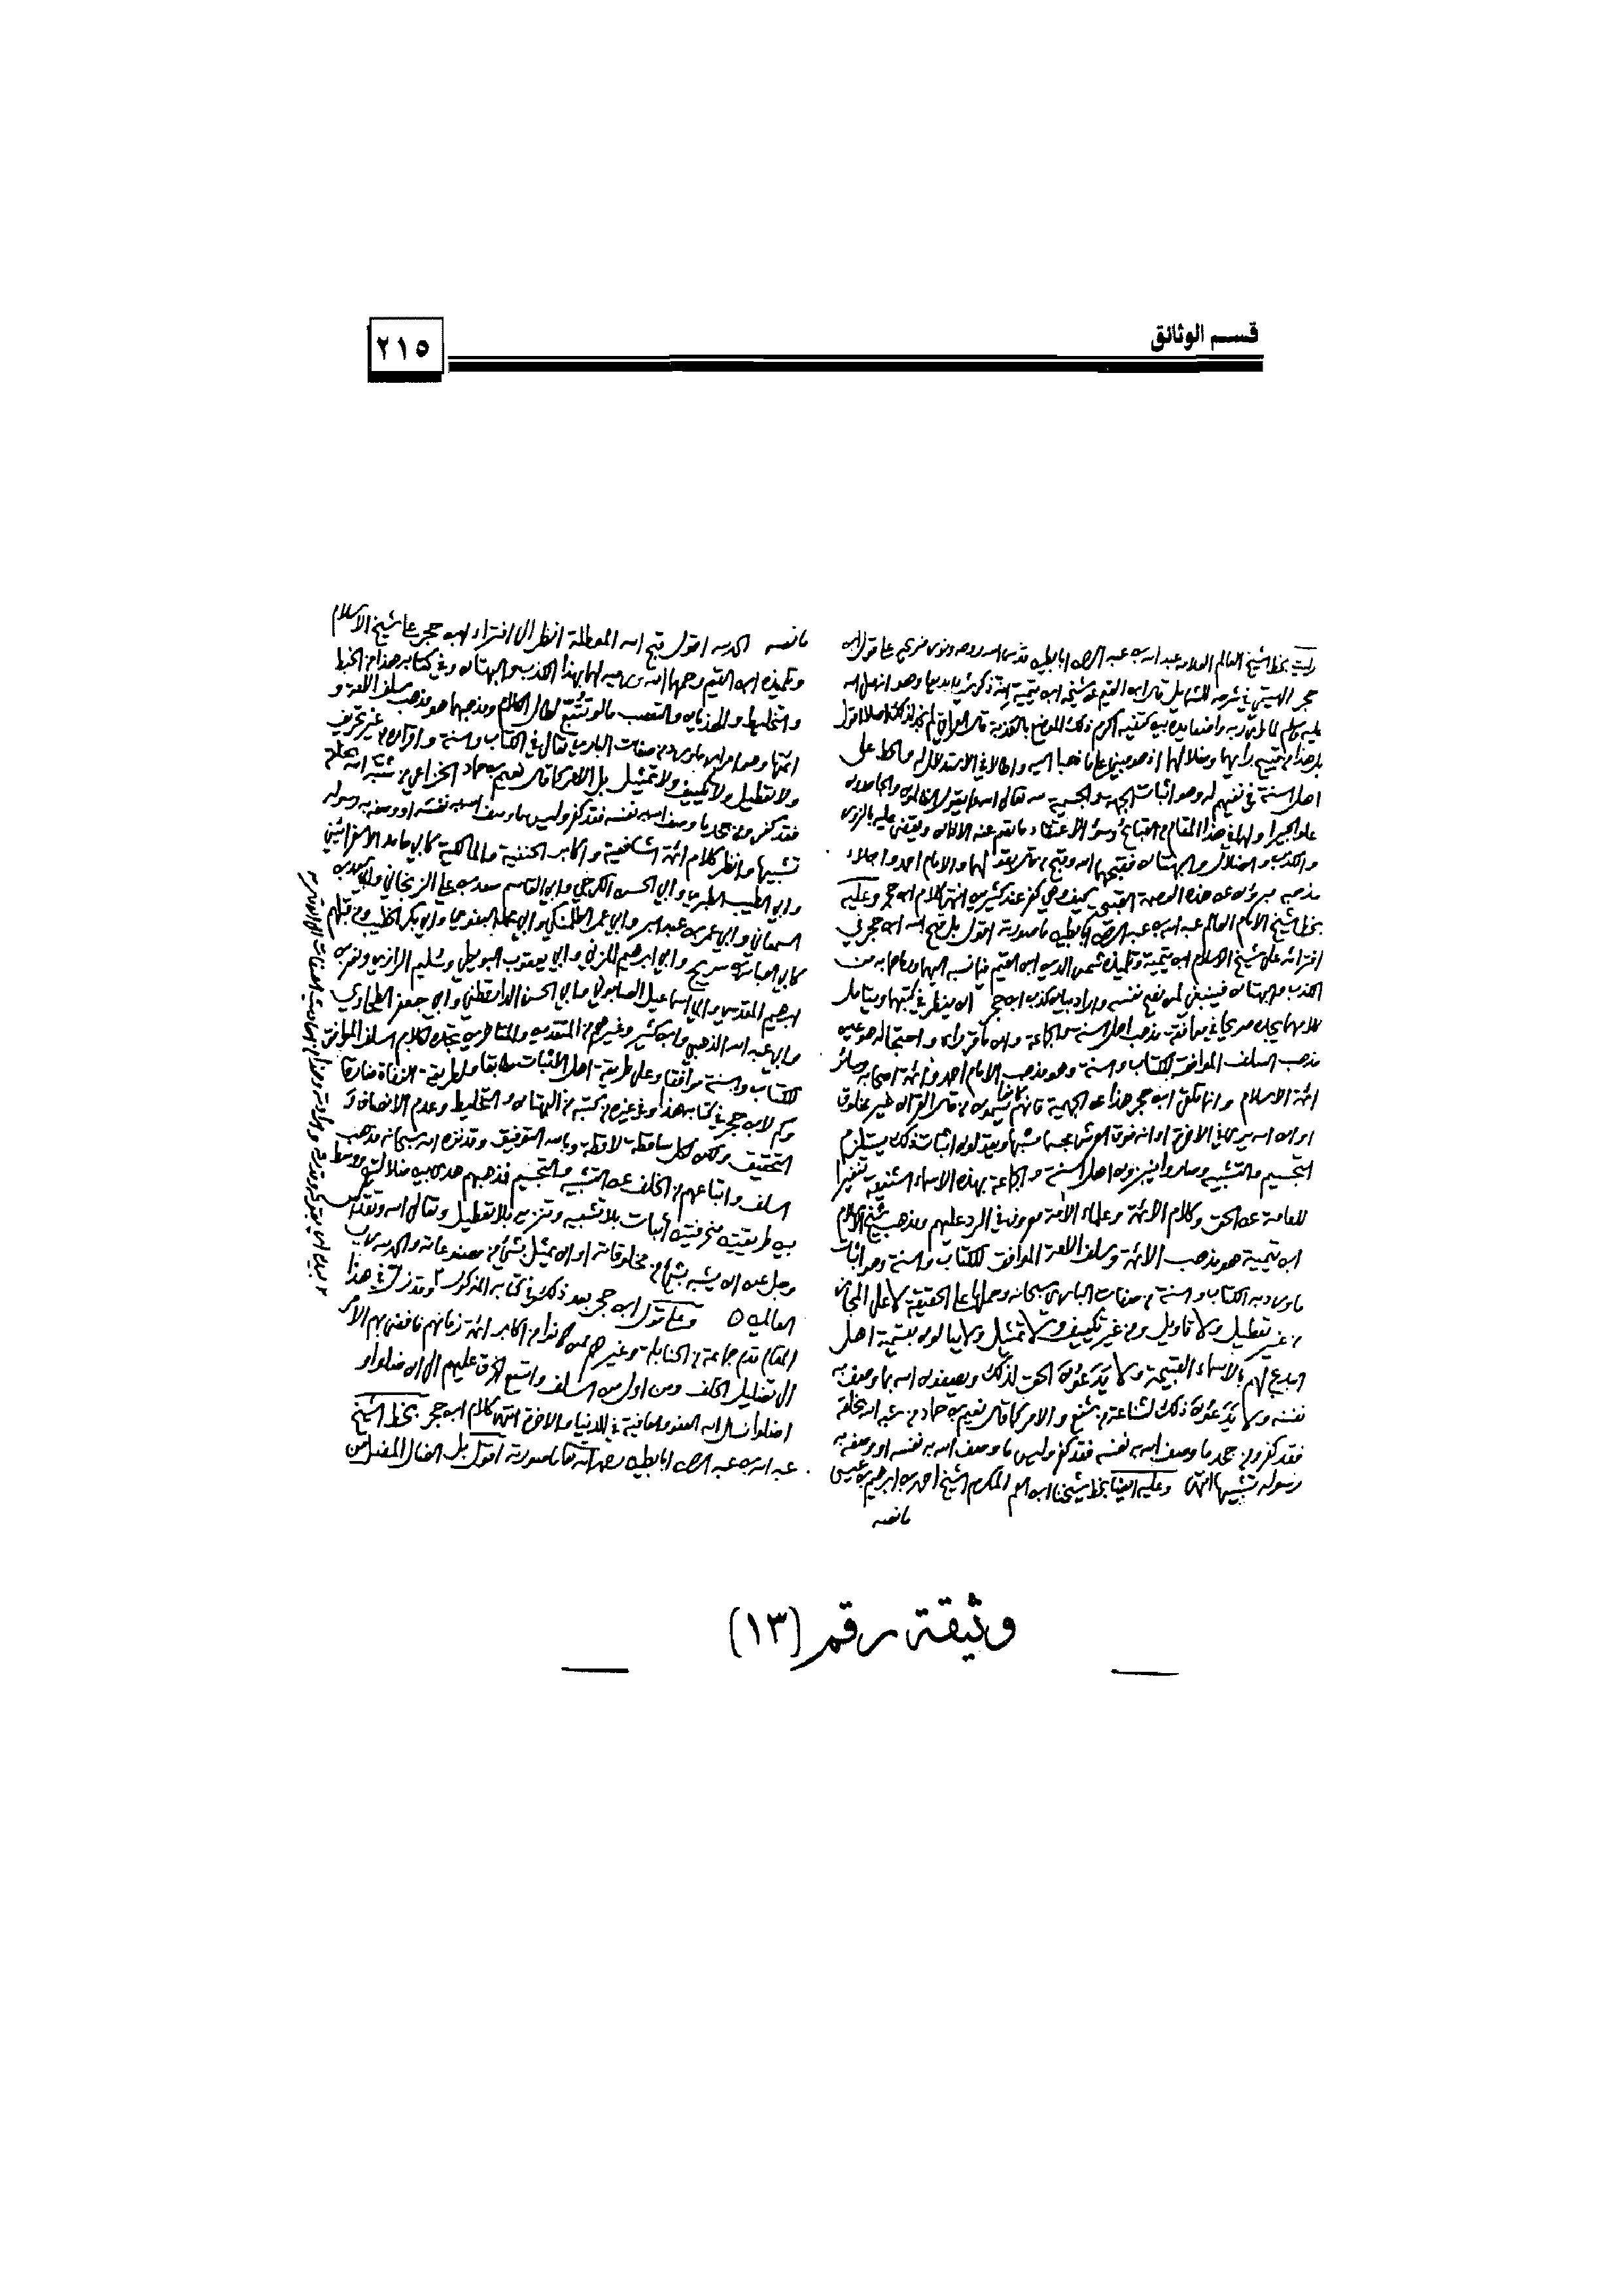 قسم الوثائق
٢١٥
رايت بخط الشيخ العالم العلامة عبد الله بن عبد الرحمن ابابطين قدس الله روحه ونور ضريحه على قول ابن
حجر الهيتمي في شرحه للشمايل قال ابن القيم عن شيخه ابن تيمية انه ذكر شيئا بديعا وهو انه صلى الله
عليه وسلم لما راى ربه واضعا يده بين كتفيه اكرم ذلك الموضع بالعذبة قال العراقي لم نجد لذلك اصلا اقول
بل هذا من قبيح رايهما وضلالهما اذ هو مبني على ما ذهبا اليه واطالا في الاستدلال له والحط على
اهل السنة في نفيهم له وهو اثبات الجهة والجسمية لله تعالى الله عما يقول الظالمون والجاحدون
علوا كبيرا ولهما في هذا المقام من القبائح وسوء الاعتقاد ما تصم عنه الاذان ويقضى عليه بالزور
والكذب والضلال والبهتان فقبحهما الله وقبح من قال بقولهما والامام احمد واجلاء
مذهبه مبرؤن عن هذه الوصمة القبيحة كيف وهي كفر عند كثيرين انتهى كلام ابن حجر وعليه
بخط الشيخ الامام العالم عبد الله بن عبد الرحمن ابابطين ما صورته اقول بل قبح الله ابن حجر في
افترائه على شيخ الاسلام ابن تيمية وتلميذه شمس الدين ابن القيم فيما نسبه اليهما ورماهما به من
الكذب والبهتان فينبغي لمن نصح نفسه واراد بيان كذب ابن حجر ان ينظر في كتبهما ويتامل
كلامهما يجده صريحا في موافقة مذهب اهل السنة والجماعة
مذهب السلف الموافق للكتاب والسنة وهو مذهب الامام احمد وائمة اصحابه وسائر
ائمة الاسلام وانما تلقى ابن حجر هذا عن الجهمية فانهم يسمون من قال القرآن غير مخلوق
او ان الله يرى في الاخرة او انه فوق العرش مجسما مشبها ويقولون اثبات ذلك يستلزم
التجسيم والتشبيه وصاروا ينبزون اهل السنة والجماعة بهذه الاسماء الشنيعة تنفيرا
للعامة عن الحق وكلام الائمة وعلماء الامة معروف في الرد عليهم ومذهب شيخ الاسلام
ابن تيمية هو مذهب الائمة وسلف الامة الموافق للكتاب والسنة وهو اثبات
ما ورد به الكتاب والسنة من صفات الباري سبحانه وحملها على الحقيقة لا على المجاز
من غير تعطيل ولا تاويل ومن غير تكييف ولا تمثيل ولا يبالون بتسمية اهل
البدع لهم بالاسماء القبيحة ولا يدعون الحق لذلك ويصفون الله بما وصف به
نفسه ولا يدعون ذلك لشناعة من شنع والامر كما قال نعيم بن حماد من شبه الله بخلقه
فقد كفر ومن جحد ما وصف الله به نفسه فقد كفر وليس ما وصف الله به نفسه او وصفه به
رسوله تشبيها انتهى وعليه ايضا بخط شيخنا ابن العم المكرم الشيخ احمد بن ابراهيم بن عيسى
ما نصه
ما نصه الحمد لله اقول قبح الله المعطلة انظر الى افتراء ابن حجر على شيخ الاسلام
وتلميذه ابن القيم رحمهما الله ورميه لهما بهذا الكذب والبهتان وفي كتابه هذا من الخبط
والتخليط والهذيان والتعصب ما لو تتبع لطال الكلام ومذهبهما هو مذهب سلف الامة و
ائمتها وهو امرار ما ورد من صفات الباري تعالى في الكتاب والسنة واقراره من غير تحريف
ولا تعطيل ولا تكييف ولا تمثيل بل الامر كما قال نعيم بن حماد الخزاعي من شبه الله بخلقه
فقد كفر ومن جحد ما وصف الله به نفسه فقد كفر وليس ما وصف الله به نفسه او وصفه به رسوله
تشبيها وانظر كلام ائمة الشافعية واكابر الحنفية والمالكية كابي حامد الاسفرائيني
وابي الطيب الطبري وابي الحسن الكرجي وابي القاسم سعد بن علي الزنجاني
السمعاني وابي عمر بن عبد البر وابي عمر الطلمنكي وابي بكر الخطيب ومن قبلهم
كابي العباس بن سريج وابي ابراهيم المزني وابي يعقوب البويطي وسليم الرازي ونصر بن
ابراهيم المقدسي وابي اسماعيل الصابوني وابي الحسن الدارقطني وابي جعفر الطحاوي
وابي عبد الله الذهبي وابن كثير وغيرهم من المتقدمين والمتاخرين تجده لكلام السلف الموافق
للكتاب والسنة موافقا وعلى طريقة اهل الاثبات مطابقا ولطريقة النفاة مفارقا
وكم لابن حجر في كتابه هذا وفي غيره من كتبه من البهتان والتخليط وعدم الانصاف و
التحقيق ولكن لكل ساقطة لاقطة وبالله التوفيق وقد نزه الله سبحانه مذهب
السلف واتباعهم من الخلف عن التشبيه والتجسيم فمذهبهم هدى بين ضلالتين ووسط
بين طريقتين منحرفتين اثبات بلا تشبيه وتنزيه بلا تعطيل وتعالى الله وتقدس
وجل عن ان يشبه بشيء من مخلوقاته او ان يمثل بشيء من مصنوعاته والحمد لله رب
العالمين ه وعلى قول ابن حجر بعد ذلك في كتابه المذكور وقد زل في هذا
المقام قدم جماعة من الحنابلة وغيرهم ممن كانوا من اكابر ائمة زمانهم فافضى بهم الامر
الى تضليل الخلف ومن اول من السلف واتسع الخرق عليهم الى ان ضلوا و
اضلوا نسال الله العفو والعافية في الدنيا والاخرة انتهى كلام ابن حجر بخط الشيخ
عبد الله بن عبد الرحمن ابابطين رحمه الله تعالى ما صورته اقول بل الضال المضل من
وثيقة رقم (١٣)